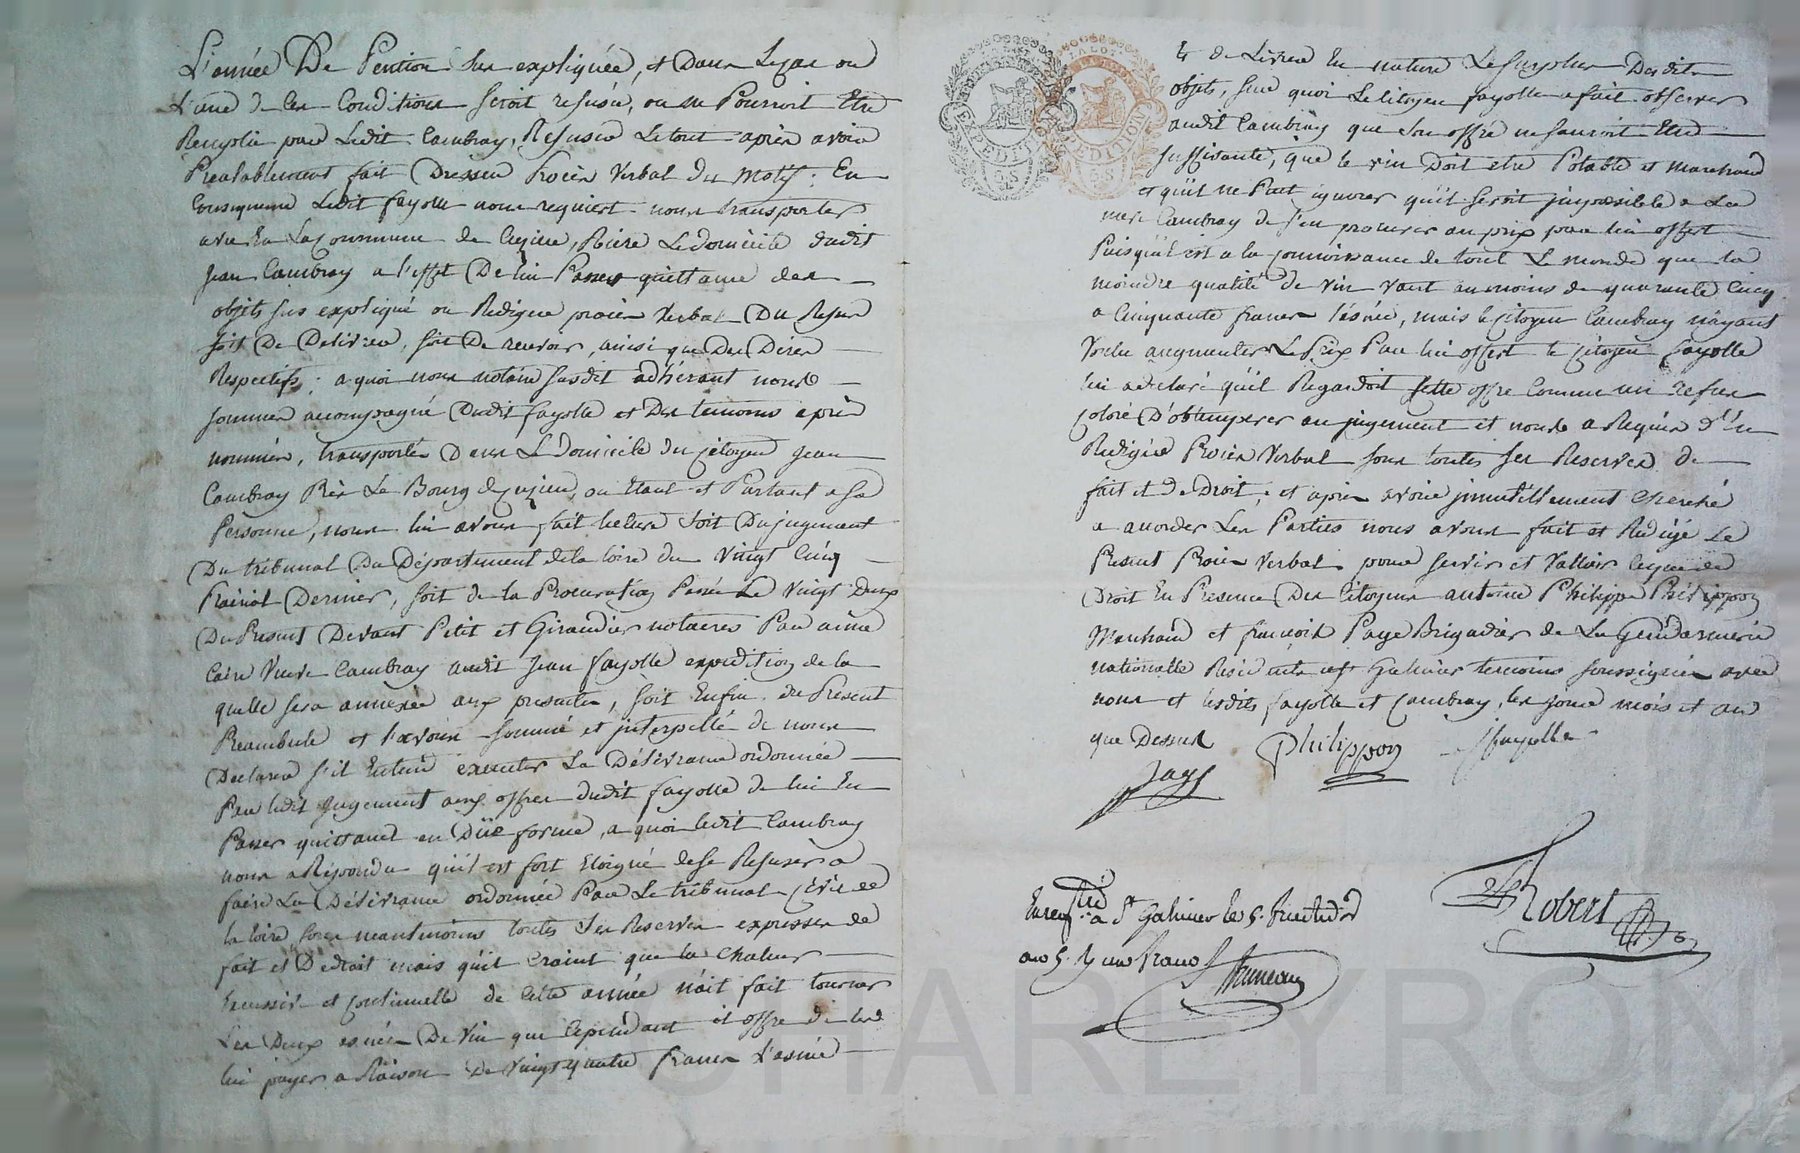 L'année De Pention sus expliquée, et Dans Le cas ou
L'une de ces Conditions seroit refusée, ou ne Pourroit Etre
Remplie par Ledit Cambray, Refuser Le tout après avoir
Prealablement fait Dresser Procès Verbal du Motif; En
Consequence Ledit fayolle nous requiert nous transporter
avec En La Commune de Cuzieu, Rière Le domicile dudit
Jean Cambray a l'effet De lui Passer quittance des
objets sus expliqué ou Rediger procès Verbal Du Refus
soit De Delivrer, soit De recevoir, ainsi que Des Dires
Respectifs; a quoi nous notaire susdit adhérant nous
sommes accompagné Dudit fayolle et Des temoins après
nommés, transportés Dans Le Domicile du citoyen Jean
Cambray Près Le Bourg de Cuzieu, ou Etant et Parlant a sa
Personne, nous lui avons fait lecture soit Du jugement
Du tribunal Du Département de la loire du vingt cinq
Prairial Dernier, soit de la Procuration Passée Le vingt Deux
Du Present Devant Petit et Giraudier notaires Par aimé
Caire Veuve Cambray audit Jean fayolle expedition de la
quelle sera annexée aux presentes, soit Enfin du Present
Preambule et l'avoir sommé et interpellé de nous
Declarer s'il Entend executer La Délivrance ordonnée
Par ledit Jugement aux offres dudit fayolle de lui En
Passer quittance en Düe forme, a quoi ledit Cambray
nous a Répondu qu'il est fort Eloigné de se Refuser a
faire La Délivrance ordonnée Par Le tribunal Civil de
la loire, sous neantmoins toutes Ses Reserves expresses de
fait et De droit mais qu'il craint que la chaleur
Excessive et continuelle de Cette année n'ait fait tourner
Les Deux asnées De Vin que Cependant il offre de les
lui payer a Raison De Vingt quatre francs l'asnée
Et de Livrer En nature Le surplus Desdits
objets, sur quoi Le Citoyen fayolle a fait observer
audit Cambray que Son offre ne sauroit Etre
suffisante, que le vin Doit etre Potable et Marchand
et qu'il ne Peut ignorer qu'il seroit impossible a La
mere Cambray de s'en procurer au prix par lui offert
Puisqu'il est a la connoissance de tout Le monde que la
moindre qualité de vin vaut au moins de quarante Cinq
a Cinquante francs l'asnée, mais le citoyen Cambray n'ayant
Voulu augmenter Le Prix Par lui offert le citoyen fayolle
lui a declaré qu'il Regardoit cette offre Comme un refus
coloré D'obtemperer au jugement et nous a Requis d'En
Rediger Procès Verbal sous toutes ses Reserves de
fait et de Droit; et après avoir inutillement Cherché
a accorder Les Parties nous avons fait et Redigé Le
Present Procès Verbal pour servir et Valloir ce que de
Droit En Presence Des Citoyens antoine Philippe Philippon
Marchand et françois Page Brigadier de La Gendarmerie
nationalle Residants a St Galmier temoins soussignés avec
nous et lesdits fayolle et Cambray, les jour mois et an
que Dessus Philippon Jfayolle
Page
Robert
Enregtré a St Galmier le 5. fructidor
an 5. R un franc
Bruneau